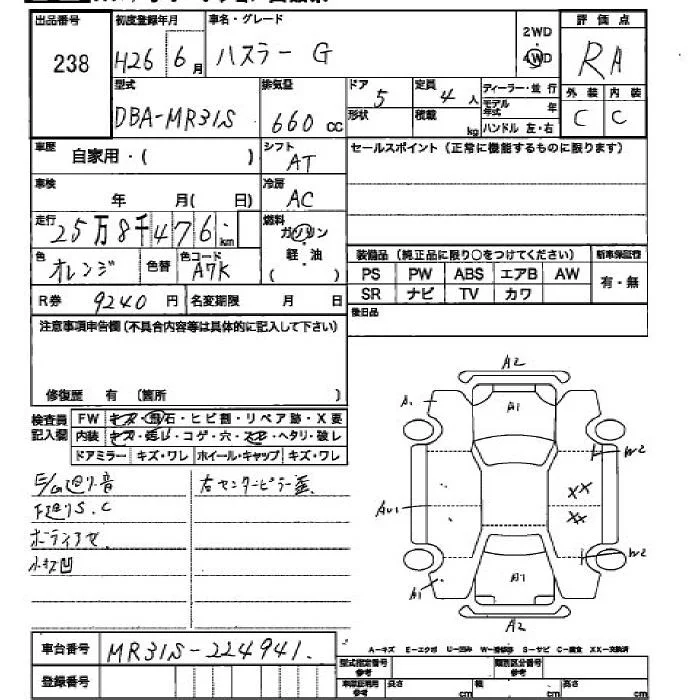 出品番号 初度登録年月 車名・グレード 評価点
238 H26年6月 ハスラー G 2WD 4WD RA
型式 排気量 ドア 定員 ディーラー・並行 外装 内装
DBA-MR31S 660cc 5 4人 モデル年式 年 C C
形状 積載 kg ハンドル 左・右
車歴 自家用・( ) シフト AT セールスポイント(正常に機能するものに限ります)
車検 年 月( 日) 冷房 AC
走行 25万8千476km 燃料 ガソリン 軽・油 ( )
色 オレンジ 色替 色コード A7K
装備品(純正品に限り○をつけてください) 新車保証書
PS PW ABS エアB AW 有・無
SR ナビ TV カワ
R券 9240円 名変期限 月 日 後日品
注意事項申告欄(不具合内容等は具体的に記入して下さい)
修復歴 有 (箇所 )
検査員記入欄 FW キズ・飛石・ヒビ割・リペア跡・X要
内装 キズ・汚レ・コゲ・穴・スレ・ヘタリ・破レ
ドアミラー キズ・ワレ ホイール・キャップ キズ・ワレ
E/G廻り音 右センターピラー
下廻りS.C
小キズ凹
A2
A1
A1
W2
AU1
XX
XX
W2
A1
A1
A2
車台番号 MR31S-224941
A-キズ E-エクボ U-凹み W-補修跡 S-サビ C-腐食 XX-交換済
登録番号 型式指定番号 参考 類別区分番号 参考
長さ cm 幅 cm 高さ cm